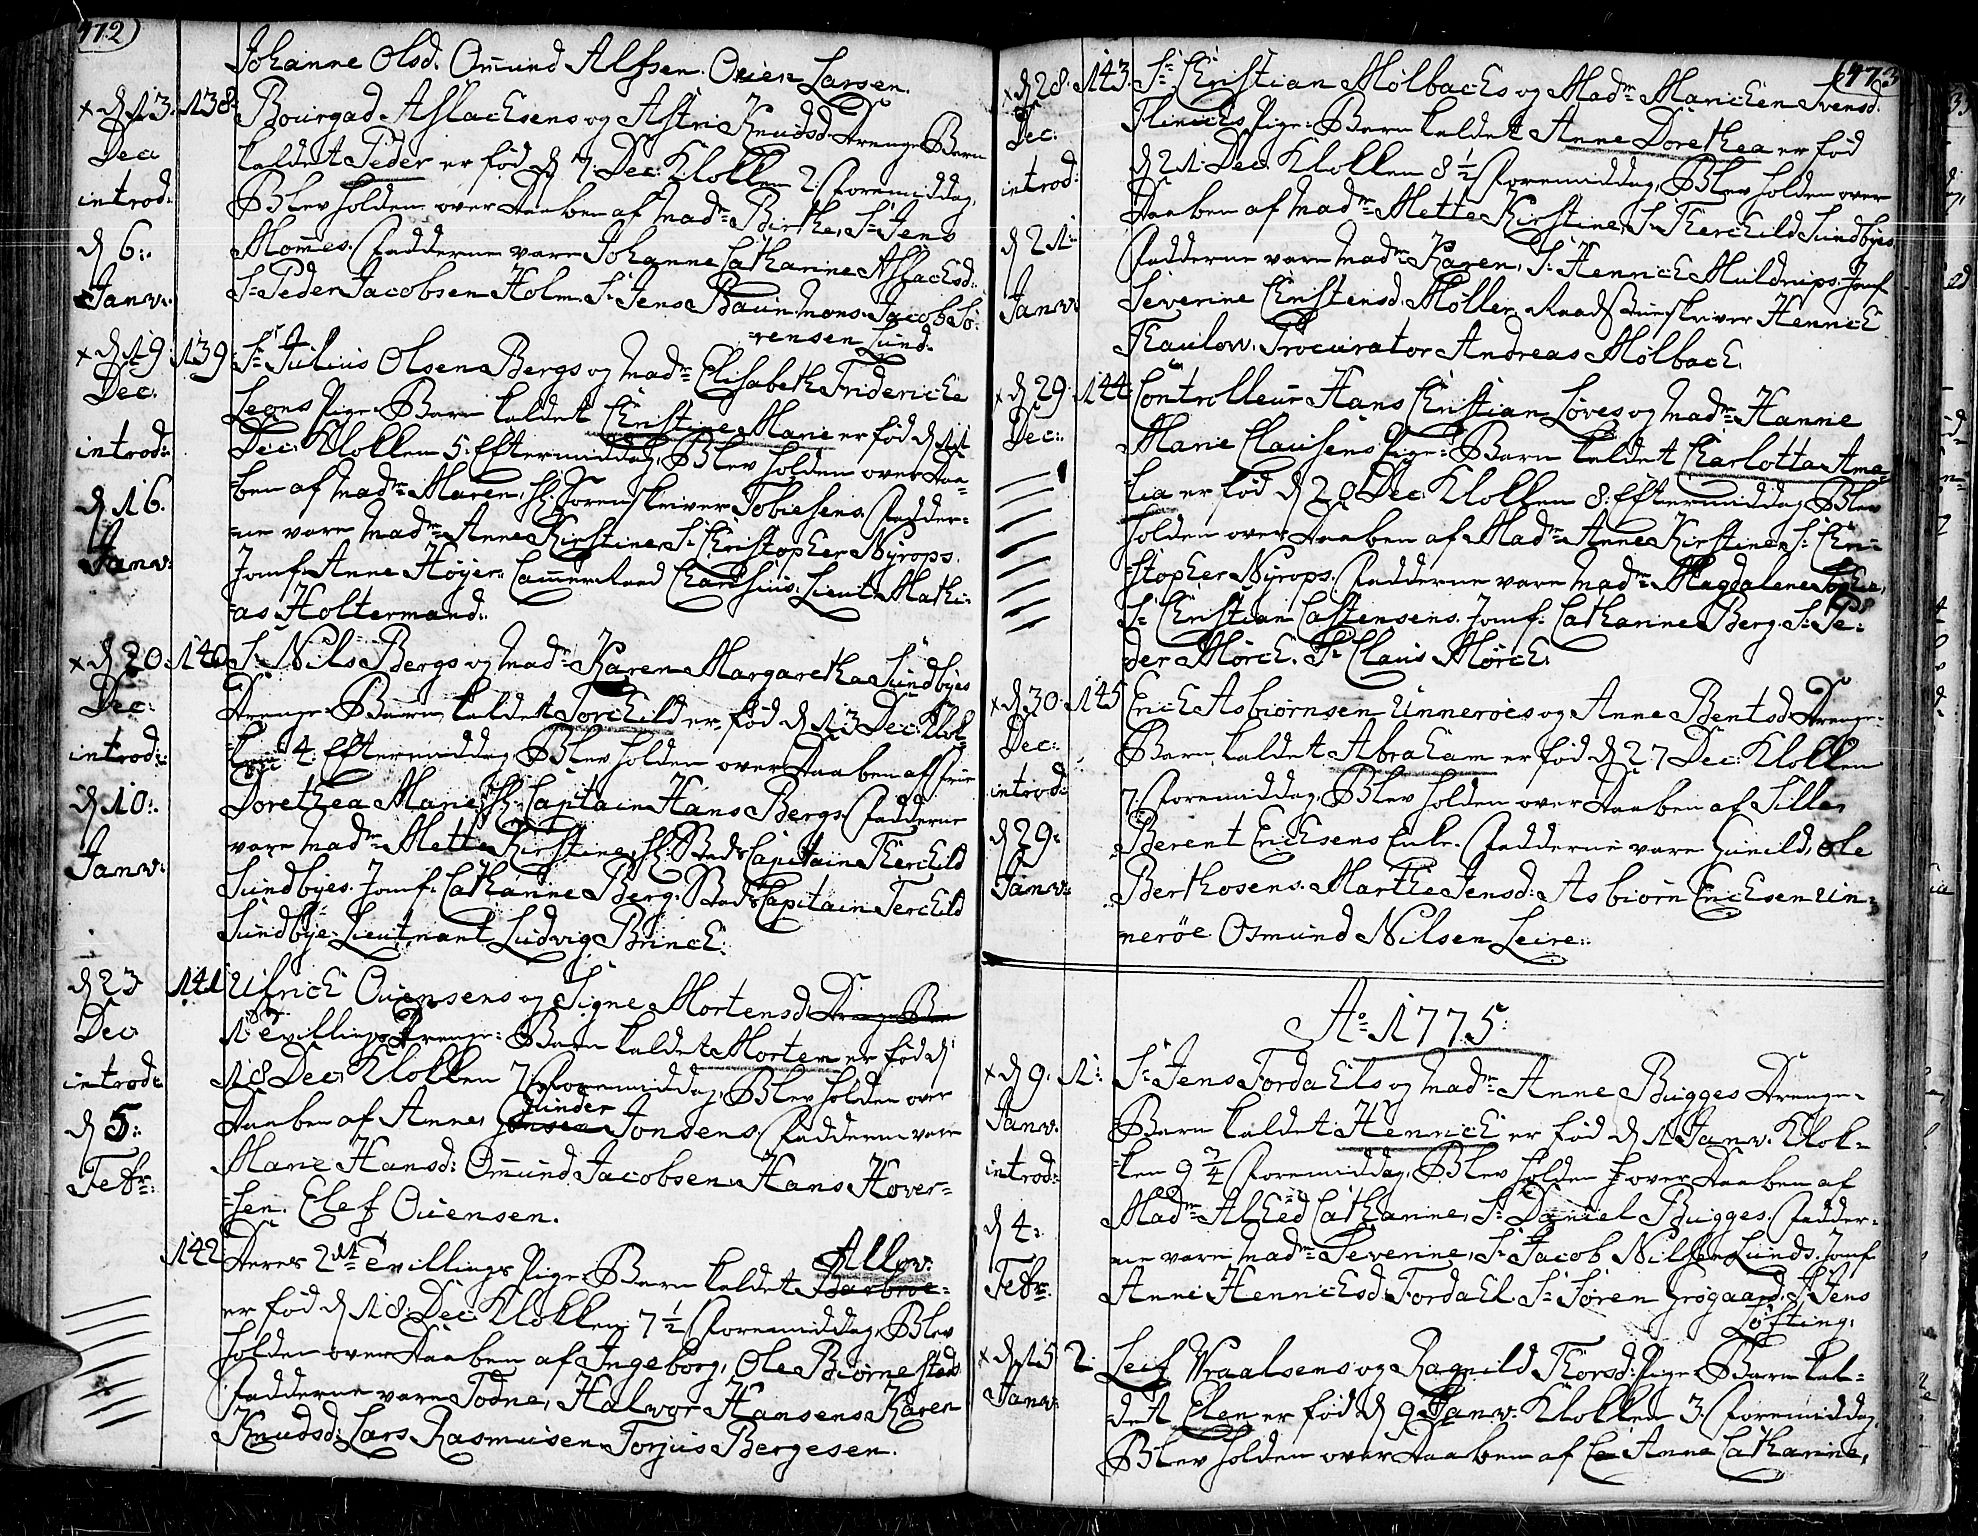 472)
Johanne Olsd. Omund Alfsen. Onen Larsen.
× d 13. 138. Bourgad Aslachsens og Astri Knudsd. Drenge Barn
Dec: kaldet Peder er fød d 7. Dec: Klokken 2. Formiddag,
introd: Blev holden over Daaben af Madm Birthe, Sr Jens
d 6. Mommes. Fadderne vare Johanne Catharine Aslachsd.
Janv: Sr Peder Jacobsen Holm. Sr Jens Baun. Mons. Jacob Sø-
rensen Lund.
× d 19. 139 Sr Julius Olsen Bergs og Madm Elisabeth Frideriche
Dec: Leons Pige-Barn kaldet Christine Marie er fød d 11
introd: Dec. Klokken 5. Eftermiddag, Blev holden over Daa-
d 16. ben af Madm Maren, H. Sorenskriver Tobiesens. Fadder-
ne vare Madm Anne Kirstine, Sr Christopher Nyrops.
Janv: Jomf. Anne Høyer. Cammerraad Charisius. Lieut. Mathi-
as Holtermand.
× d 20. 140 Sr Nils Bergs og Madm Karen Margaretha Sundbyes
Dec: Drenge-Barn, kaldet Torchild er fød d 13 Dec: Klok-
introd: ken 4. Eftermiddag Blev holden over Daaben af Frue
d 10. Dorethea Marie, H. Capitain Hans Bergs. Fadderne
vare Madm Mette Kirstine, H. Stads Capitain Therchild
Janv: Sundbyes. Jomf. Catharine Berg. Stads Capitain Terchild
Sundbye. Lieutnant Ludvig Brinch.
d 23 141 Ulrich Ouensens og Signe Mortensd. Drenge Barn
Dec 1ste Tvillings Drenge-Barn kaldet Morten er fød d
introd: 18 Dec: Klokken 7 Formiddag, Blev holden over
d 5. Daaben af Anne, Gunder Jonsens. Fadderne vare
Febr: Marie Hansd: Omund Jacobsen. Hans Hover-
sen. Elef Ouensen.
142 Deres 2det Tvillings Pige-Barn kaldet Allow.
er fød d 18 Dec: Klokken 7 1/2 Formiddag, Blev
holden over Daaben af Ingeborg, Ole Biørnestads.
Fadderne vare Todne, Halvor Hansens. Karen
Knudsd: Lars Rasmusen. Torjus Bergesen.
(473
× d 28. 143. Sr Christian Mølbachs og Madm Marichen Svensd.
Dec: Flinchs Pige-Barn kaldet Anne Dorethea er fød
introd: d 21. Dec: Klokken 8 1/2 Formiddag, Blev holden over
Daaben af Madm Mette Kirstine, Sr Therchild Sundbyes.
d 21. Fadderne vare Madm Karen, Sr Henrich Muldrups. Jomf.
Janv: Severine Christensd. Møller. Raadstueskriver Henrich
Thaulow. Procurator Andreas Mølbach.
× d 29. 144. Controlleur Hans Christian Løves og Madm Hanne
Dec: Marie Clausens Pige-Barn kaldet Charlotta Ama-
lia er fød d 20 Dec: Klokken 8. Eftermiddag, Blev
holden over Daaben af Madm Anne Kirstine, Sr Chri-
stopher Nyrops. Fadderne vare Madm Magdalene Sophie,
Sr Christian Castensens. Jomf. Catharine Berg. Sr Pe-
der Mørch. Sr Claus Mørch.
× d 30. 145 Erich Asbiørnsen Unnerøes og Anne Bentsd. Drenge-
Dec: Barn kaldet Abraham er fød d 27 Dec: Klokken
introd: 7. Formiddag, Blev holden over Daaben af Sille,
d 29. Berent Erichsens Enke. Fadderne vare Gunild, Ole
Janv: Berthosens. Marthe Jensd: Asbiørn Erichsen Un-
nerøe. Osmund Nilsen Leire.
Ao 1775.
× d 9. 1. Sr Jens Fordahls og Madm Anne Bugges Drenge-
Janv. Barn kaldet Henrich er fød d 1 Janv. Klok-
introd: ken 9 3/4 Formiddag, Blev holden over Daaben af
d 4. Madm Alhed Catharine, Sr Daniel Bugges. Fadder-
ne vare Madm Severine, Sr Jacob Nilsen Lunds. Jomf
Febr: Anne Henrichsd. Fordahl. Sr Søren Grøgaard. Sr Jens
Løfting.
× d 15 2. Leif Vraalsens og Ragnild Thorsd: Pige-Barn kal-
Janv: det Elen er fød d 9 Janv: Klokken 3. Formiddag,
Blev holden over Daaben af Anne Catharine,